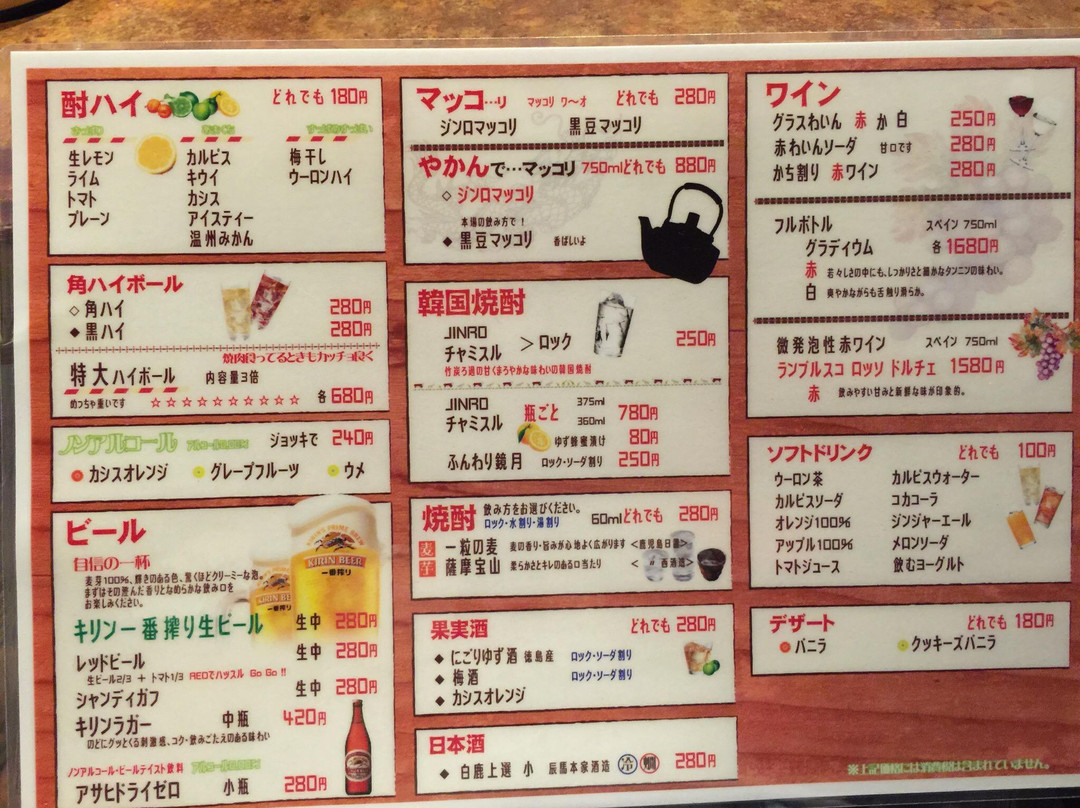 酎ハイ どれでも 180円
さっぱり あまくち すっぱいすっぱい
生レモン カルピス 梅干し
ライム キウイ ウーロンハイ
トマト カシス
プレーン アイスティー
温州みかん
角ハイボール
◇ 角ハイ 280円
◆ 黒ハイ 280円
焼肉食ってるときもカッチョ良く
特大ハイボール 内容量3倍
めっちゃ重いです ☆☆☆☆☆☆☆☆☆☆ 各 680円
ノンアルコール アルコール0.00% ジョッキで 240円
カシスオレンジ グレープフルーツ ウメ
ビール
自信の一杯
麦芽100%、輝きのある色、驚くほどクリーミーな泡。
まずはその澄んだ香りとなめらかな飲み口を
お楽しみください。
KIRIN BEER
一番搾り
キリン一番搾り生ビール 生中 280円
レッドビール 生中 280円
生ビール2/3 + トマト1/3 REDでハッスル Go Go !!
シャンディガフ 生中 280円
キリンラガー 中瓶 420円
のどにグッとくる刺激感、コク・飲みごたえのある味わい
ノンアルコール・ビールテイスト飲料 アルコール0.00%
アサヒドライゼロ 小瓶 280円
マッコ…リ マッコリ ワ〜オ どれでも 280円
ジンロマッコリ 黒豆マッコリ
やかんで…マッコリ 750mlどれでも 880円
◇ ジンロマッコリ
本場の飲み方で!
◆ 黒豆マッコリ 香ばしいよ
韓国焼酎
JINRO
チャミスル >ロック 250円
竹炭ろ過の甘くまろやかな味わいの韓国焼酎
JINRO 瓶ごと 375ml 780円
チャミスル 360ml
ゆず蜂蜜漬け 80円
ふんわり鏡月 ロック・ソーダ割り 250円
焼酎 飲み方をお選びください。
ロック・水割り・湯割り 60mlどれでも 280円
麦 一粒の麦 麦の香り・旨みが心地よく広がります <鹿児島日置>
芋 薩摩宝山 柔らかさとキレのあるロ当たり < 〃 西酒造>
果実酒 どれでも 280円
◆ にごりゆず酒 徳島産 ロック・ソーダ割り
◆ 梅酒 ロック・ソーダ割り
◆ カシスオレンジ
日本酒
◆ 白鹿上選 小 辰馬本家酒造 冷 燗 280円
ワイン
グラスわいん 赤 か 白 250円
赤わいんソーダ 甘口です 280円
かち割り 赤ワイン 280円
フルボトル スペイン 750ml
グラディウム 各 1680円
赤 若々しさの中にも、しっかりさと細かなタンニンの味わい。
白 爽やかながらも舌触り滑らか。
微発泡性赤ワイン スペイン 750ml
ランブルスコ ロッソ ドルチェ 1580円
赤 飲みやすい甘みと新鮮な味が印象的。
ソフトドリンク どれでも 100円
ウーロン茶 カルピスウォーター
カルピスソーダ コカコーラ
オレンジ100% ジンジャーエール
アップル100% メロンソーダ
トマトジュース 飲むヨーグルト
デザート どれでも 180円
バニラ クッキーズバニラ
※上記価格には消費税は含まれていません。